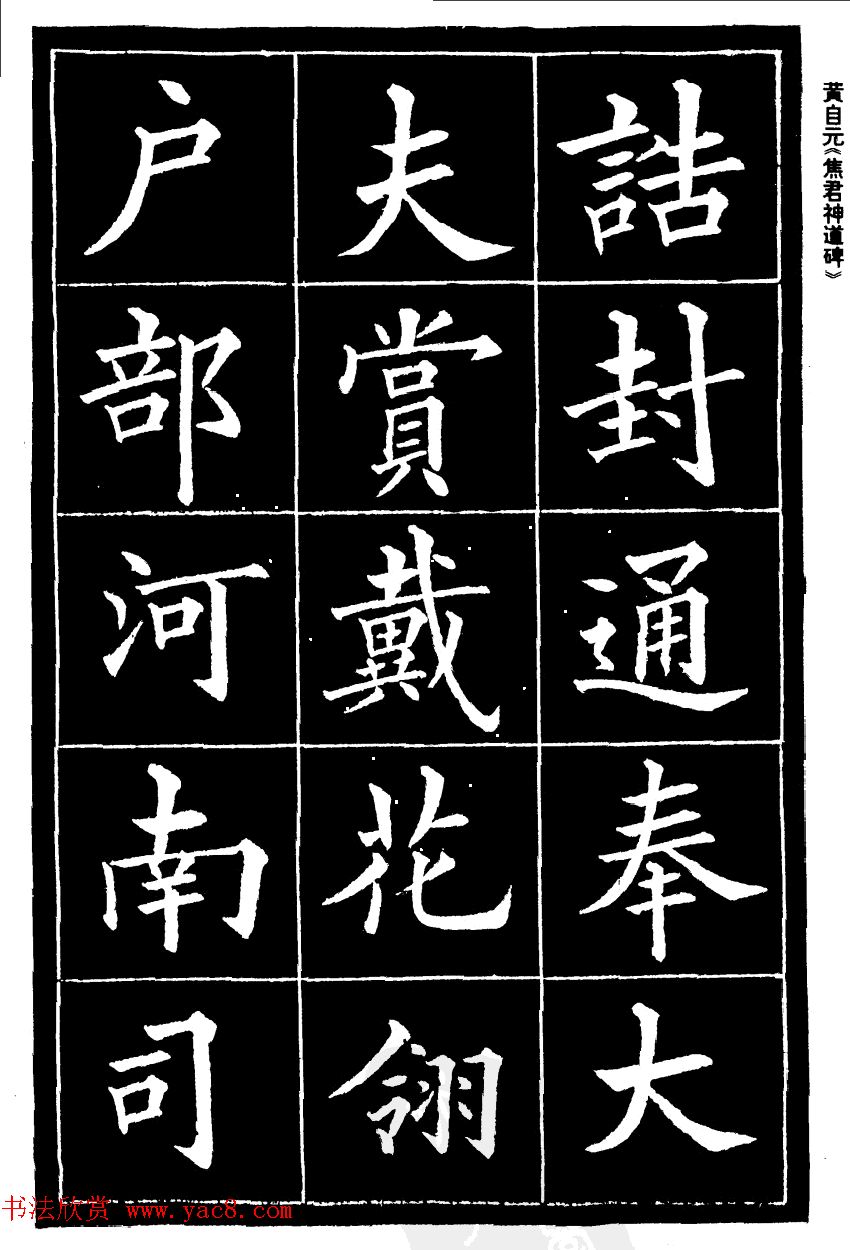 黃自元《焦君神道碑》
誥封通奉大
夫賞戴花翎
户部河南司
书法欣赏 www.yac8.com